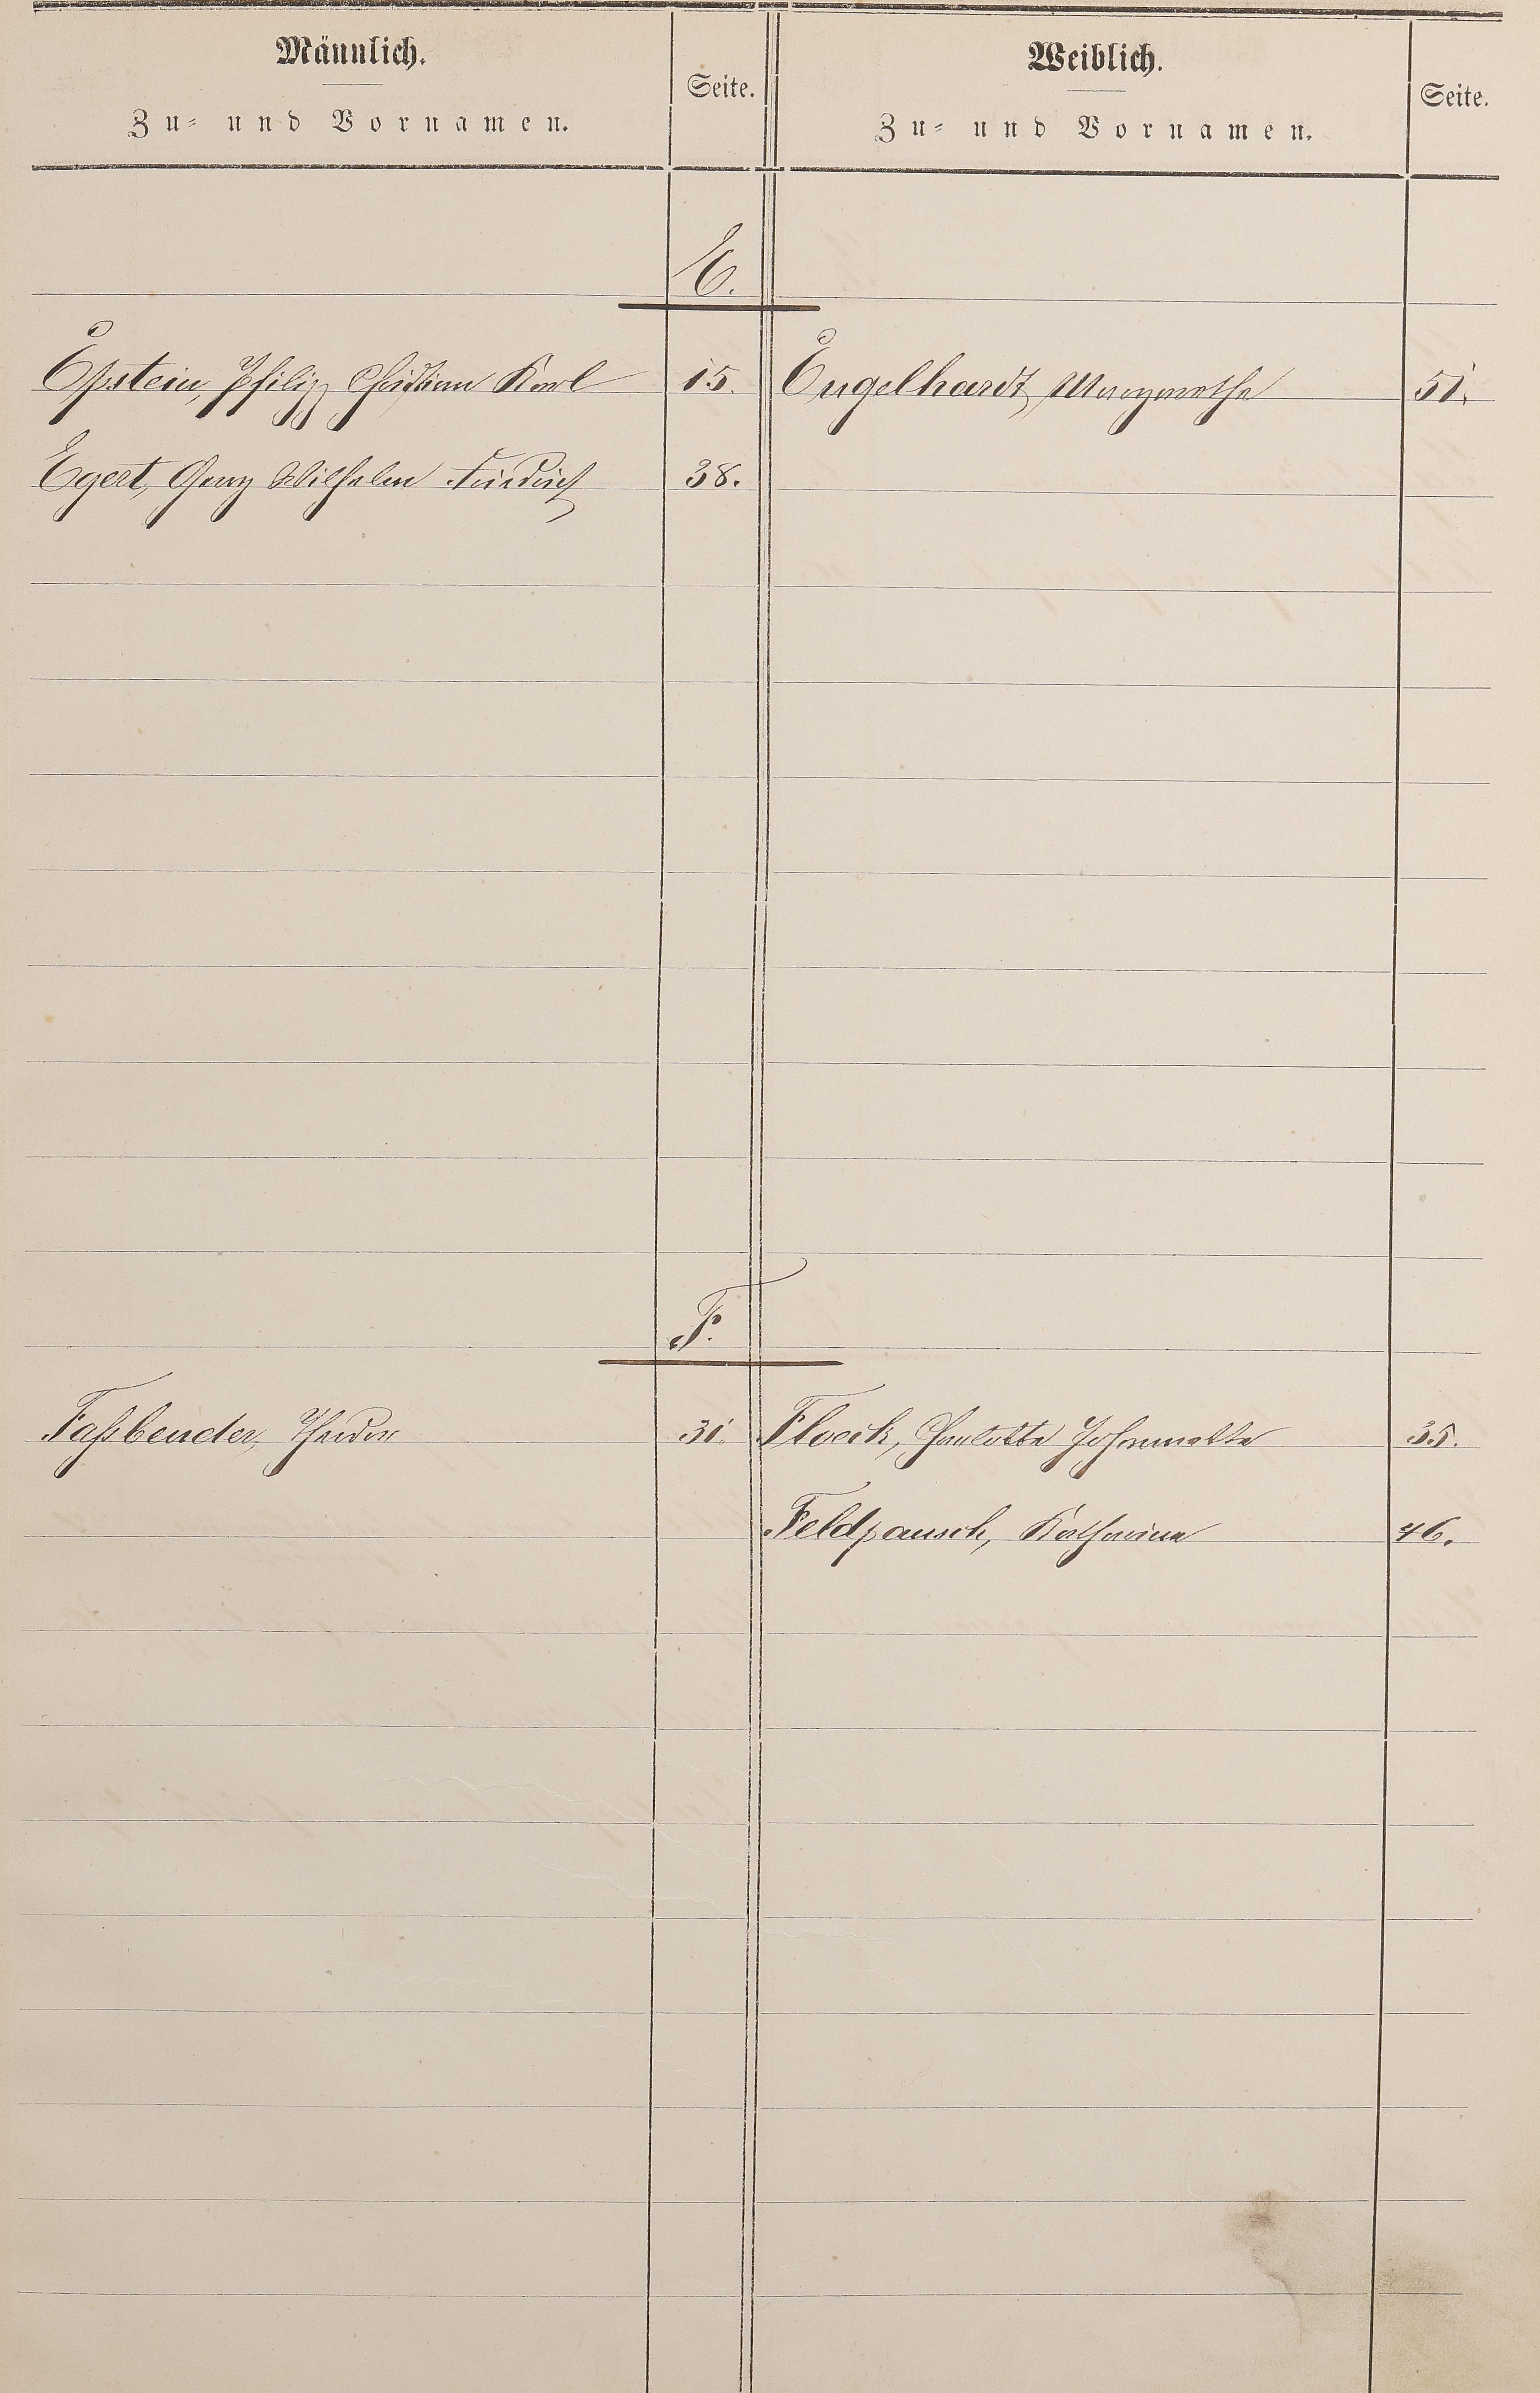 Männlich.
Zu- und Vornamen.
Seite.
Weiblich.
Zu- und Vornamen.
Seite.
E.
Epstein, Philipp Christian Karl 15. Engelhardt, Margarethe 51.
Egert, Georg Wilhelm Friedrich 38.
F.
Faßbender, Theodor 31. Floeck, Charlotte Johannette 35.
Feldpausch, Katharina 46.